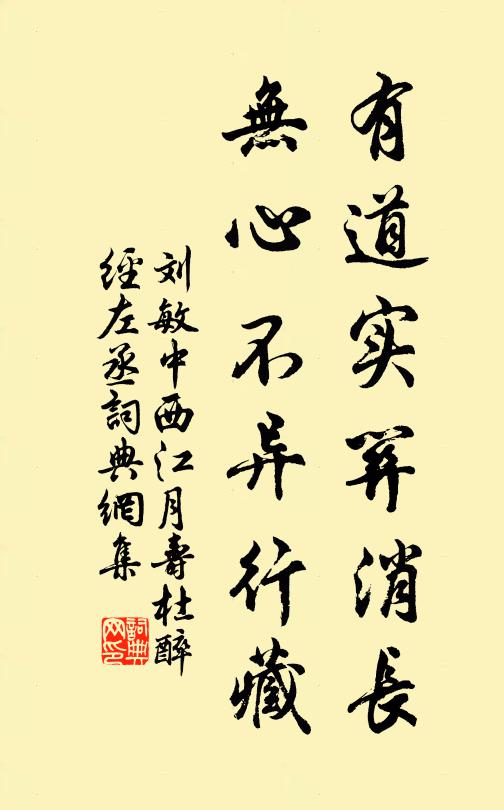 有道实关消长
無心不异行藏
刘敏中西江月壽杜醉
經左丞詞典網集
詞典
网印